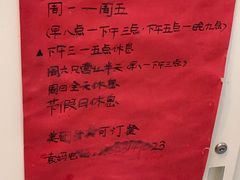 周一一周五
(早八点一下午三点、下午五点一晚九点)
▲下午三一五点休息
周六只营业半天(早八一下午三点)
周日全天休息
节假日休息
可订餐
023